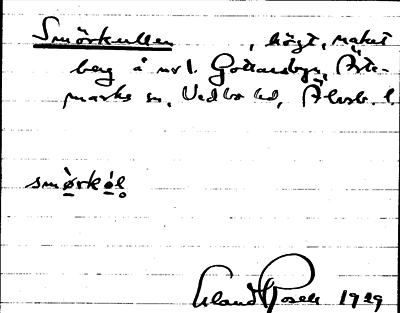 Smörkullen, högt, naket
berg å nr 1. Gottarsbyn, Ärte-
marks sn, Vedbo hd, Älvsb. l.
smö̀rkól
Erland Rosell 1929